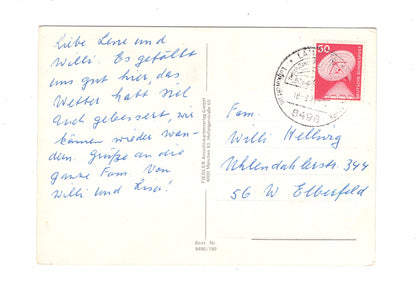 Liebe Lene und
Willi. Es gefällt
uns gut hier, das
Wetter hatt viel
auch gebessert, wir
können wieder wan-
dern. Grüße an die
ganze Fam. Von
Willi und Lisa!
FIEDLER Ansichtskartenverlag GmbH
8000 München
Best. Nr.
8496/190
8496
50
DEUTSCHE BUNDESPOST
Fam.
Willi Hellwig
Uhlendahlerstr. 344
56 W. Elberfeld